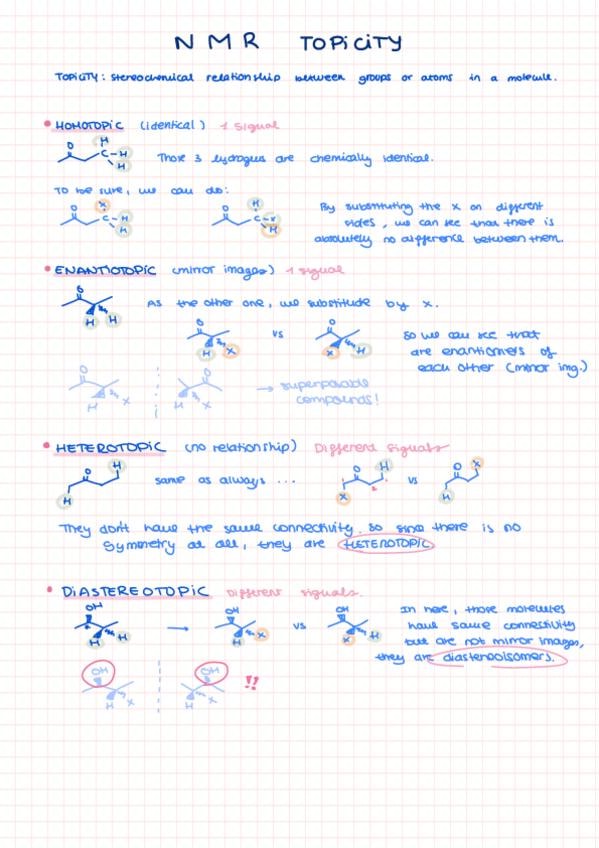 NMR TOPiCiTY
TOPiCiTY: stereochemical relationship between groups or atoms in a molecule.
HOMOTOPiC (identical) 1 signal
O H
C-H
H
Those 3 hydrogens are chemically identical.
To be sure, we can do:
O X
C-H
H
O H
C-X
H
By substituting the x on different
sides, we can see that there is
absolutely no difference between them.
ENANTIOTOPiC (mirror images) 1 signal
O
H H
As the other one, we substitude by x.
O
H X
vs
O
X H
So we can see that
are enantiomers of
each other (mirror img.)
O
H X
O
H X
→ superposable
compounds!
HETEROTOPiC (no relationship) Different signals
O H
H
same as always ...
O H
X
vs
O X
H
They don't have the same connectivity. So since there is no
symmetry at all, they are HETEROTOPiC
DiASTEREOTOPiC Different signals.
OH
H H
→
OH
H X
vs
OH
X H
In here, those molecules
have same connectivity
but are not mirror images,
they are diastereoisomers.
OH
H X
OH
H X
!!